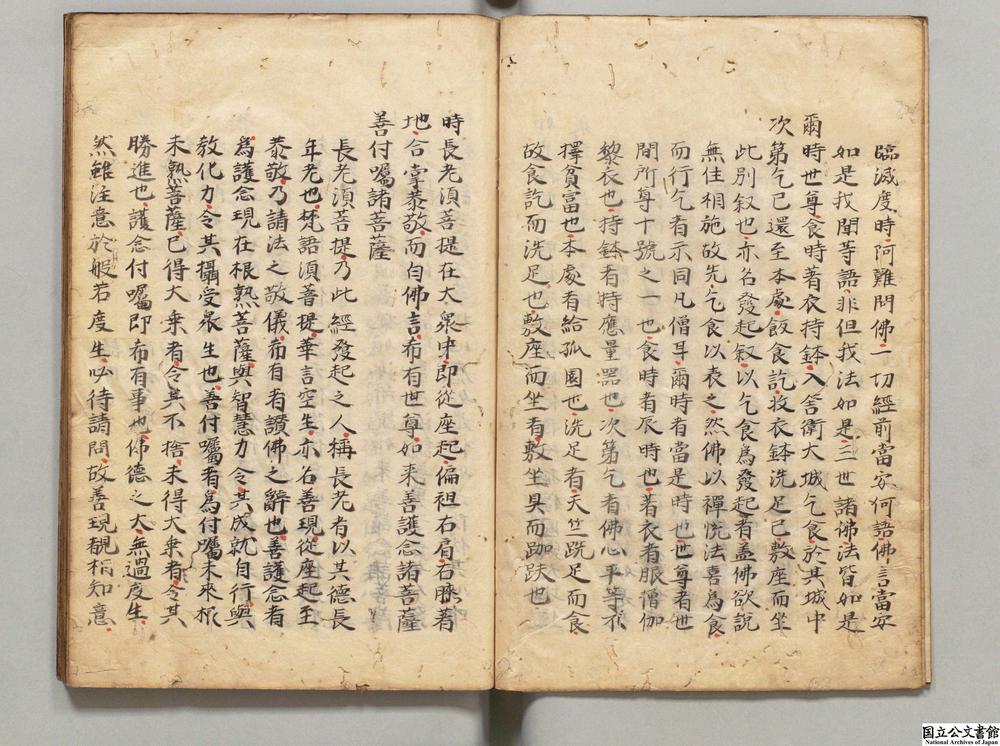 臨滅度時阿難問佛一切經前當安何語佛言當安
如是我聞等語非但我法如是三世諸佛法皆如是
爾時世尊食時著衣持鉢入舍衛大城乞食於其城中
次第乞已還至本處飯食訖收衣鉢洗足已敷座而坐
此別叙也亦名發起叙以乞食為發起者盖佛欲說
無住相施故先乞食以表之然佛以禪悅法喜為食
而行乞者示同凡僧耳爾時者當是時也世尊者世
間所尊十號之一也食時者辰時也著衣者服僧伽
黎衣也持鉢者持應量器也次第乞者佛心平等不
擇貧富也本處者給孤園也洗足者天竺跣足而食
故食訖而洗足也敷座而坐者敷坐具而跏趺也
時長老須菩提在大衆中即從座起偏袒右肩右膝著
地合掌恭敬而白佛言希有世尊如来善護念諸菩薩
善付囑諸菩薩
長老須菩提乃此經發起之人稱長老者以其德長
年老也梵語須菩提華言空生亦名善現從座起至
恭敬乃請法之敬儀希有者讚佛之辭也善護念者
為護念現在根熟菩薩與智慧力令其成就自行與
教化力令其攝受衆生也善付囑者為付囑未來根
未熟菩薩已得大乗者令其不捨未得大乗者令其
勝進也護念付囑即希有事也佛德之大無過度生
然雖注意於般若度生必待請問故善現覩相知意
国立公文書館
National Archives of Japan